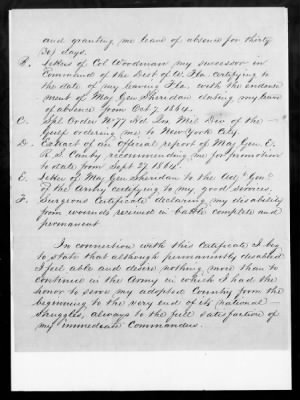 and granting me leave of absence for thirty
30) days.
B. Letters of Col Woodman my successor in
Command of the Dist of W. Fla. certifying to
the date of my leaving Fla. with the endorse
ment of Maj Gen Sheridan dating my leave
of absence from Oct 7. 1864.
C. Spl. Order No 77 Hd Qrs Mil Div of the —
Gulf ordering me to New York City
D. Extract of an Official report of Maj Gen. E.
R. S. Canby recommending me for promotion
to date from Sept 27. 1864.
E. Letter of Maj Gen Sheridan to the Adj "Gen"
of the Army certifying to my good services.
F. Surgeons Certificate declaring my disability
from wounds received in battle complete and
permanent
In connection with this Certificate I beg
to state that although permanently disabled
I feel able and desire nothing more than to
continue in the Army in which I had the
honor to serve my adopted Country from the
beginning to the very end of its national —
struggles, always to the full satisfaction of
my immediate Commanders.